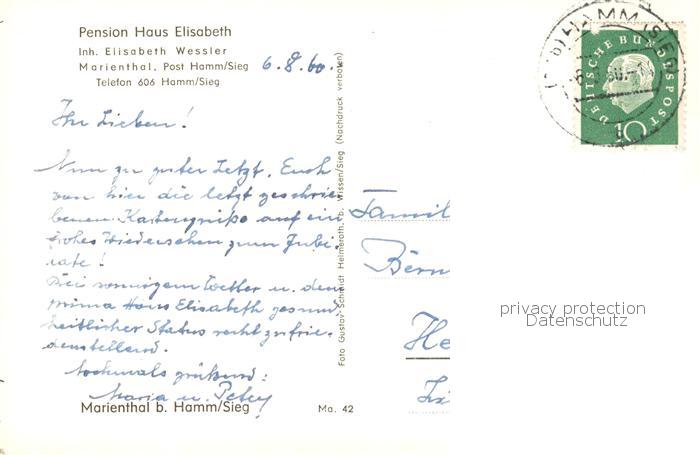 Pension Haus Elisabeth
Inh. Elisabeth Wessler
Marienthal, Post Hamm/Sieg
Telefon 606 Hamm/Sieg
6.8.60.
Ihr Lieben!
Nun zu guter Letzt, Euch
von hier die letzt geschrie-
benen Kartengrüße auf ein
frohes Wiedersehen zum Jubi-
late!
Bei sonnigem Wetter u. dem
prima Haus Elisabeth gesund-
heitlicher Status recht zufrie-
denstellend.
Nochmals grüßend:
Maria u. Peter
Marienthal b. Hamm/Sieg
Ma. 42
Foto Gustav Schmidt Helmeroth, b. Wissen/Sieg (Nachdruck verboten)
HAMM (SIEG)
DEUTSCHE BUNDESPOST
10
Famil
Bern
He
privacy protection
Datenschutz